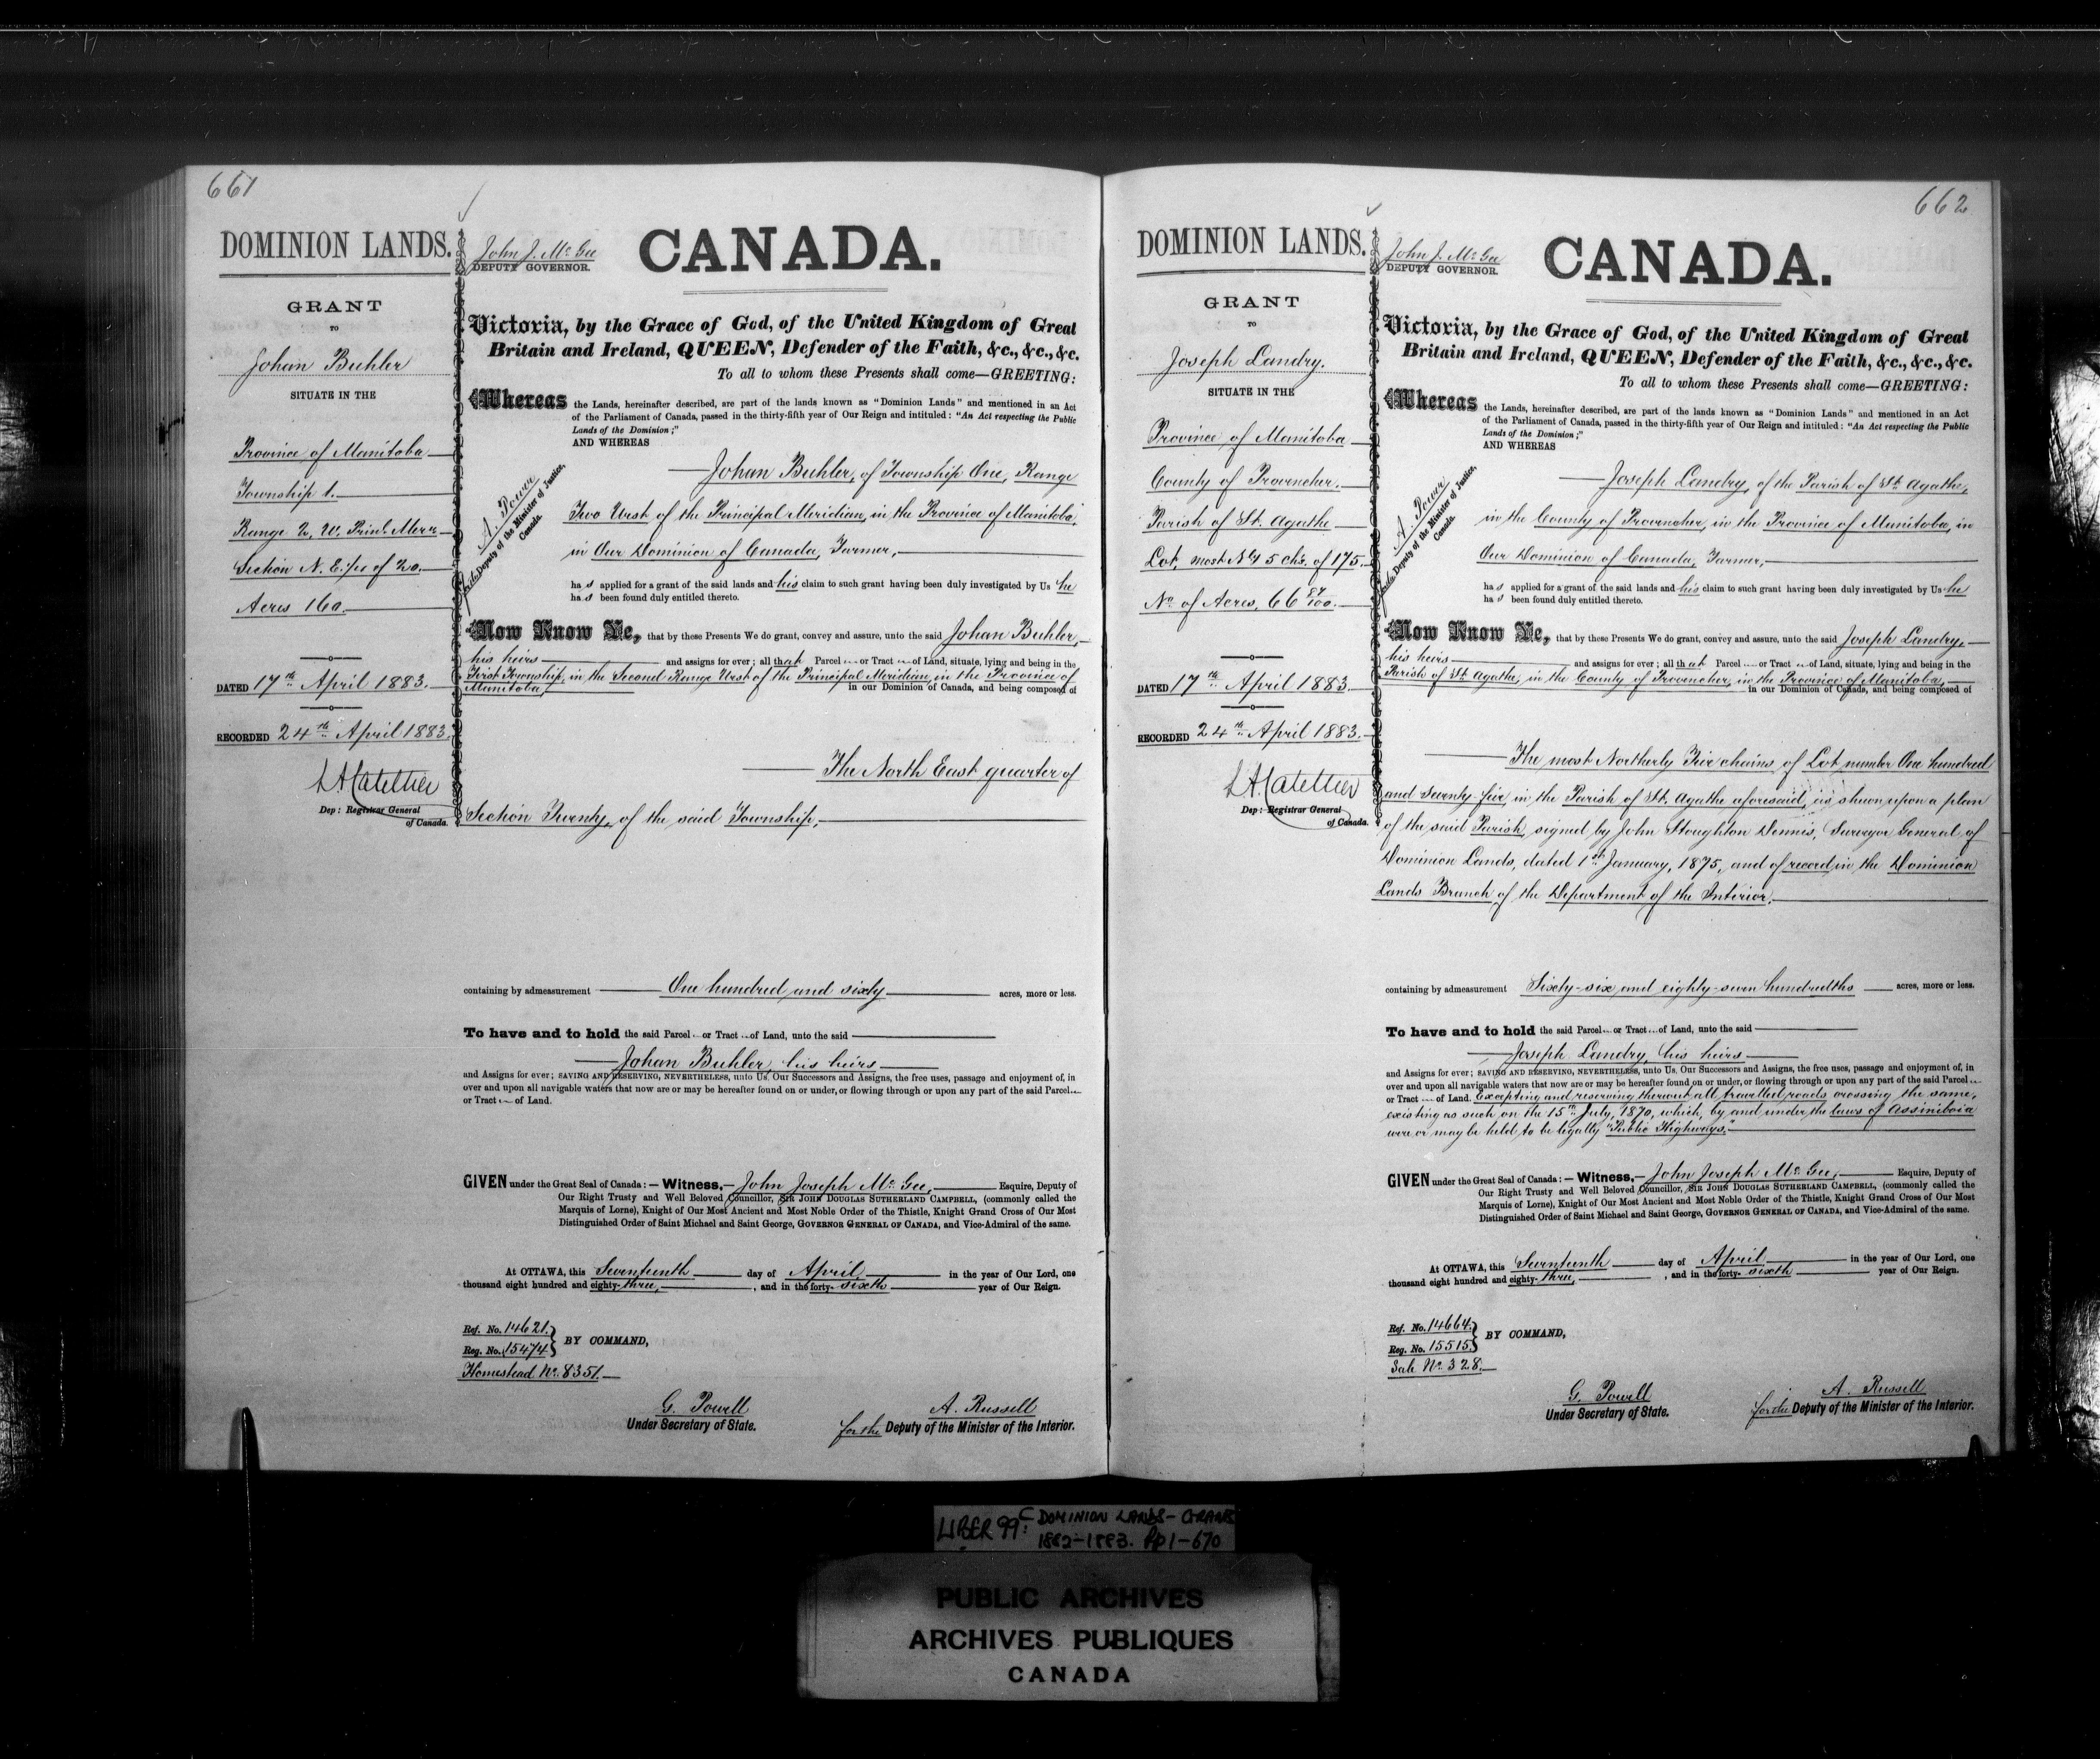 661
DOMINION LANDS.
GRANT
TO
Johan Buhler
SITUATE IN THE
Province of Manitoba
Township 1.
Range 2, W. Prinl. Mern
Section N. E. 1/4 of 20.
Acres 160.
DATED 17th April 1883.
RECORDED 24th April 1883.
Dep: Registrar General
of Canada.
John J. McGee
DEPUTY GOVERNOR.
CANADA.
Victoria, by the Grace of God, of the United Kingdom of Great
Britain and Ireland, QUEEN, Defender of the Faith, &c., &c., &c.
To all to whom these Presents shall come—GREETING:
Whereas the Lands, hereinafter described, are part of the lands known as "Dominion Lands" and mentioned in an Act
of the Parliament of Canada, passed in the thirty-fifth year of Our Reign and intituled: "An Act respecting the Public
Lands of the Dominion;"
AND WHEREAS
A. Power
for the Deputy of the Minister of Justice,
Canada.
Johan Buhler, of Township One, Range
Two West of the Principal Meridian, in the Province of Manitoba,
in Our Dominion of Canada, Farmer,
has applied for a grant of the said lands and his claim to such grant having been duly investigated by Us he
has been found duly entitled thereto.
Now Know Ye, that by these Presents We do grant, convey and assure, unto the said Johan Buhler,
his heirs and assigns for ever; all that Parcel or Tract of Land, situate, lying and being in the
First Township, in the Second Range West of the Principal Meridian, in the Province of
Manitoba in our Dominion of Canada, and being composed of
The North East quarter of
Section Twenty, of the said Township,
containing by admeasurement One hundred and sixty acres, more or less.
To have and to hold the said Parcel or Tract of Land, unto the said
Johan Buhler, his heirs
and Assigns for ever; SAVING AND RESERVING, NEVERTHELESS, unto Us, Our Successors and Assigns, the free uses, passage and enjoyment of, in
over and upon all navigable waters that now are or may be hereafter found on or under, or flowing through or upon any part of the said Parcel
or Tract of Land.
GIVEN under the Great Seal of Canada:—Witness,—John Joseph McGee, Esquire, Deputy of
Our Right Trusty and Well Beloved Councillor, SIR JOHN DOUGLAS SUTHERLAND CAMPBELL, (commonly called the
Marquis of Lorne), Knight of Our Most Ancient and Most Noble Order of the Thistle, Knight Grand Cross of Our Most
Distinguished Order of Saint Michael and Saint George, GOVERNOR GENERAL OF CANADA, and Vice-Admiral of the same.
At OTTAWA, this Seventeenth day of April in the year of Our Lord, one
thousand eight hundred and eighty-three, and in the forty-sixth year of Our Reign.
Ref. No. 14621.
Reg. No. 15474.
BY COMMAND,
Homestead No. 8351.
G. Powell
Under Secretary of State.
A. Russell
for the Deputy of the Minister of the Interior.
662
DOMINION LANDS.
GRANT
TO
Joseph Landry.
SITUATE IN THE
Province of Manitoba
County of Provencher.
Parish of St. Agathe
Lot, most N'ly 5 chs. of 175.
No. of Acres, 66 87/100.
DATED 17th April 1883.
RECORDED 24th April 1883.
Dep: Registrar General
of Canada.
John J. McGee
DEPUTY GOVERNOR.
CANADA.
Victoria, by the Grace of God, of the United Kingdom of Great
Britain and Ireland, QUEEN, Defender of the Faith, &c., &c., &c.
To all to whom these Presents shall come—GREETING:
Whereas the Lands, hereinafter described, are part of the lands known as "Dominion Lands" and mentioned in an Act
of the Parliament of Canada, passed in the thirty-fifth year of Our Reign and intituled: "An Act respecting the Public
Lands of the Dominion;"
AND WHEREAS
A. Power
for the Deputy of the Minister of Justice,
Canada.
Joseph Landry, of the Parish of St. Agathe,
in the County of Provencher, in the Province of Manitoba, in
Our Dominion of Canada, Farmer,
has applied for a grant of the said lands and his claim to such grant having been duly investigated by Us he
has been found duly entitled thereto.
Now Know Ye, that by these Presents We do grant, convey and assure, unto the said Joseph Landry,
his heirs and assigns for ever; all that Parcel or Tract of Land, situate, lying and being in the
Parish of St. Agathe, in the County of Provencher, in the Province of Manitoba,
in our Dominion of Canada, and being composed of
The most Northerly Five chains, of Lot number One hundred
and Seventy five, in the Parish of St. Agathe aforesaid, as shewn upon a plan
of the said Parish, signed by John Stoughton Dennis, Surveyor General of
Dominion Lands, dated 1st January, 1875, and of record, in the Dominion
Lands Branch of the Department of the Interior.
containing by admeasurement Sixty-six and eighty-seven hundredths acres, more or less.
To have and to hold the said Parcel or Tract of Land, unto the said
Joseph Landry, his heirs
and Assigns for ever; SAVING AND RESERVING, NEVERTHELESS, unto Us, Our Successors and Assigns, the free uses, passage and enjoyment of, in
over and upon all navigable waters that now are or may be hereafter found on or under, or flowing through or upon any part of the said Parcel
or Tract of Land. Excepting and reserving thereout all travelled roads crossing the same,
existing as such on the 15th July, 1870, which, by and under the laws of Assiniboia
were or may be held to be legally "Public Highways."
GIVEN under the Great Seal of Canada:—Witness,—John Joseph McGee, Esquire, Deputy of
Our Right Trusty and Well Beloved Councillor, SIR JOHN DOUGLAS SUTHERLAND CAMPBELL, (commonly called the
Marquis of Lorne), Knight of Our Most Ancient and Most Noble Order of the Thistle, Knight Grand Cross of Our Most
Distinguished Order of Saint Michael and Saint George, GOVERNOR GENERAL OF CANADA, and Vice-Admiral of the same.
At OTTAWA, this Seventeenth day of April in the year of Our Lord, one
thousand eight hundred and eighty-three, and in the forty-sixth year of Our Reign.
Ref. No. 14664.
Reg. No. 15515.
BY COMMAND,
Sale No. 328.
G. Powell
Under Secretary of State.
A. Russell
for the Deputy of the Minister of the Interior.
LIBER 99C: DOMINION LANDS - GRANTS
1882-1883. Pp 1-670
PUBLIC ARCHIVES
ARCHIVES PUBLIQUES
CANADA